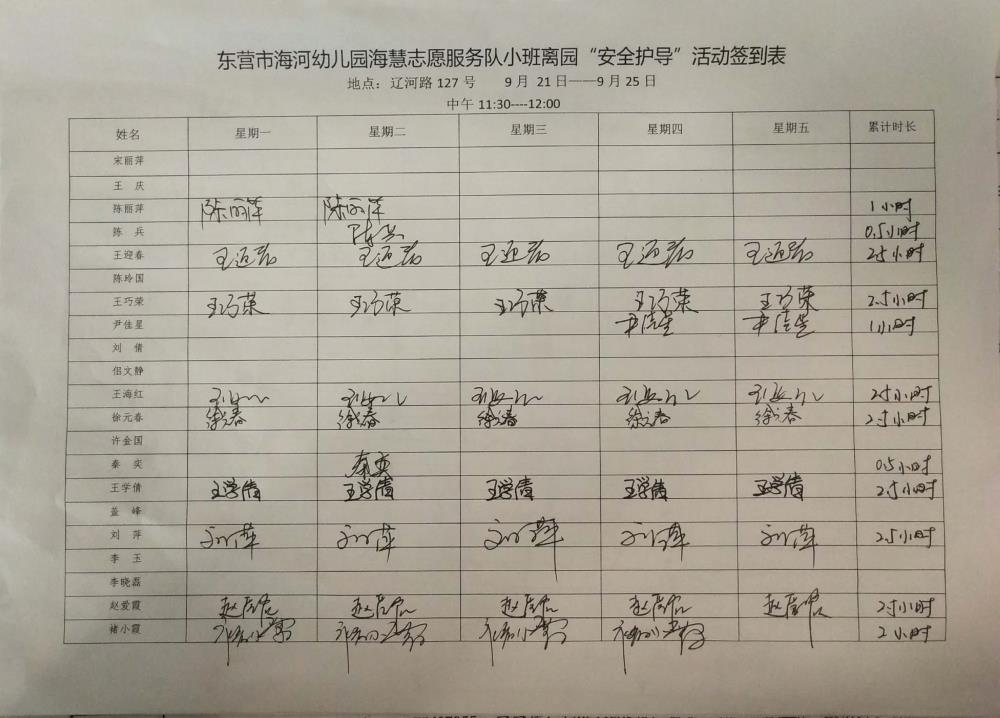 东营市海河幼儿园海慧志愿服务队小班离园“安全护导”活动签到表
地点：辽河路 127 号 9 月 21 日——9 月 25 日
中午 11:30----12:00
姓名 星期一 星期二 星期三 星期四 星期五 累计时长
宋丽萍
王 庆
陈丽萍 陈丽萍 陈丽萍 1小时
陈 兵 陈兵 0.5小时
王迎春 王迎春 王迎春 王迎春 王迎春 王迎春 2.5小时
陈玲国
王巧荣 王巧荣 王巧荣 王巧荣 王巧荣 王巧荣 2.5小时
尹佳星 尹佳星 尹佳星 1小时
刘 倩
侣文静
王海红 王海红 王海红 王海红 王海红 王海红 2.5小时
徐元春 徐元春 徐元春 徐元春 徐元春 徐元春 2.5小时
许金国
秦 奕 秦奕 0.5小时
王学倩 王学倩 王学倩 王学倩 王学倩 王学倩 2.5小时
盖 峰
刘 萍 刘萍 刘萍 刘萍 刘萍 刘萍 2.5小时
李 玉
李晓磊
赵爱霞 赵爱霞 赵爱霞 赵爱霞 赵爱霞 赵爱霞 2.5小时
褚小霞 褚小霞 褚小霞 褚小霞 褚小霞 2小时